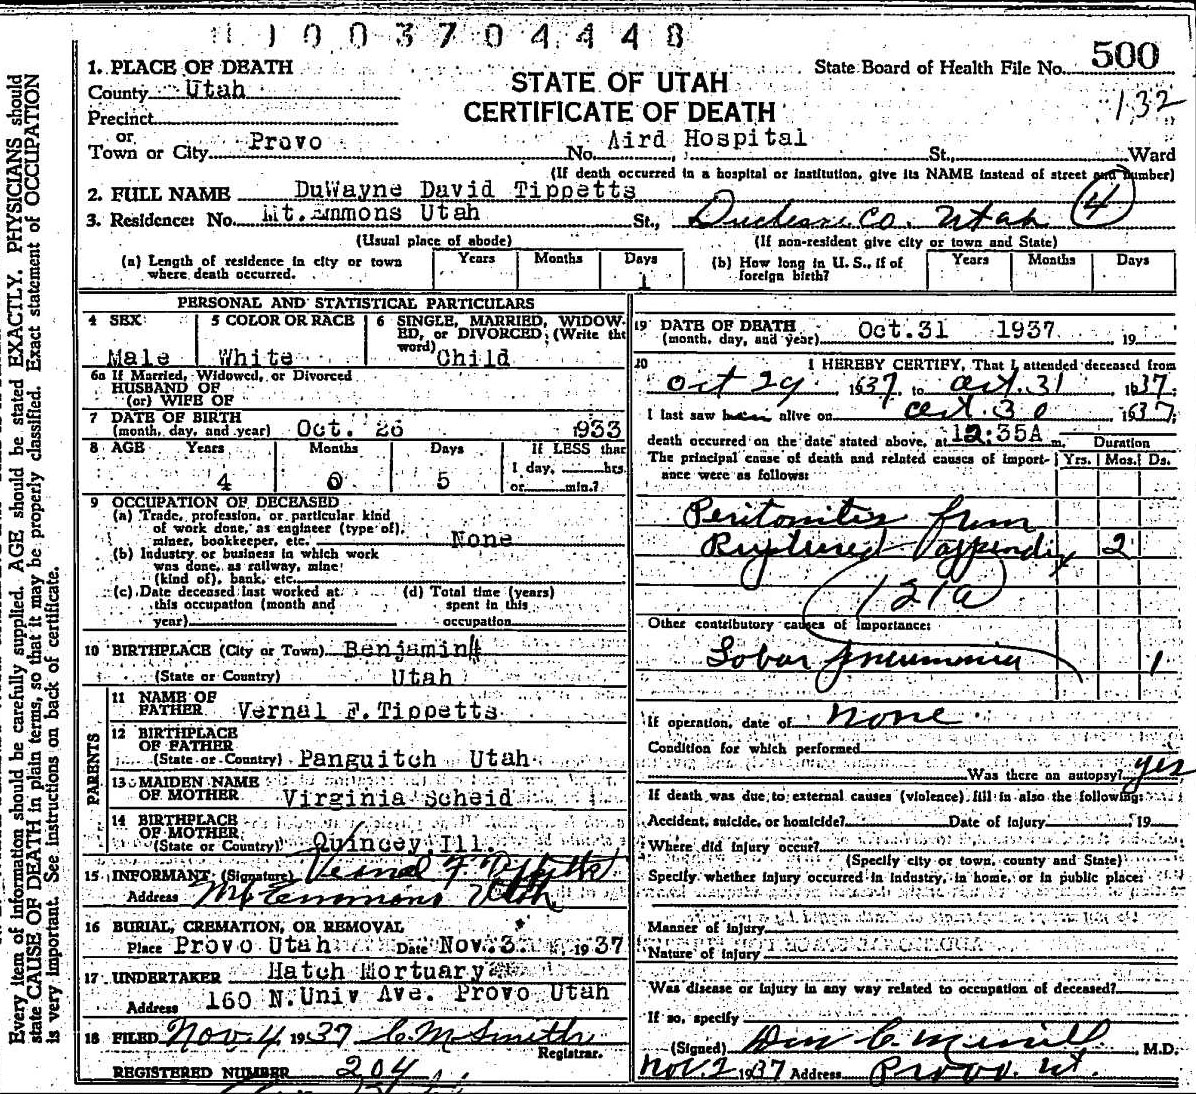 1003704448
500
State Board of Health File No.
132
STATE OF UTAH
CERTIFICATE OF DEATH
1. PLACE OF DEATH
County Utah
Precinct
or
Town or City Provo No. Aird Hospital St., Ward
(If death occurred in a hospital or institution, give its NAME instead of street and number)
2. FULL NAME DuWayne David Tippetts
3. Residence: No. Mt. Emmons Utah St., Duchesne Co. Utah 4
(Usual place of abode) (If non-resident give city or town and State)
(a) Length of residence in city or town where death occurred. Years Months Days 1
(b) How long in U. S., if of foreign birth? Years Months Days
PERSONAL AND STATISTICAL PARTICULARS
4 SEX Male
5 COLOR OR RACE White
6 SINGLE, MARRIED, WIDOWED, or DIVORCED (Write the word) Child
6a If Married, Widowed, or Divorced
HUSBAND OF
(or) WIFE OF
7 DATE OF BIRTH
(month, day, and year) Oct. 26 1933
8 AGE Years 4 Months 0 Days 5 If LESS than
1 day, hrs.
or min.?
9 OCCUPATION OF DECEASED
(a) Trade, profession, or particular kind
of work done, as engineer (type of),
miner, bookkeeper, etc. None
(b) Industry or business in which work
was done, as railway, mine
(kind of), bank, etc.
(c) Date deceased last worked at
this occupation (month and
year)
(d) Total time (years)
spent in this
occupation
10 BIRTHPLACE (City or Town) Benjamin
(State or Country) Utah
PARENTS
11 NAME OF
FATHER Vernal F. Tippetts
12 BIRTHPLACE
OF FATHER
(State or Country) Panguitch Utah
13 MAIDEN NAME
OF MOTHER Virginia Scheid
14 BIRTHPLACE
OF MOTHER
(State or Country) Quincey, Ill.
15 INFORMANT: (Signature) Vernal F. Tippetts
Address Mt Emmons Utah
16 BURIAL, CREMATION, OR REMOVAL
Place Provo Utah Date Nov. 3 1937
17 UNDERTAKER Hatch Mortuary
Address 160 N. Univ Ave. Provo Utah
18 FILED Nov. 4 1937 C M Smith
Registrar.
REGISTERED NUMBER 204
19 DATE OF DEATH
(month, day, and year) Oct. 31 1937 19
20 I HEREBY CERTIFY, That I attended deceased from
Oct 29 1937 to Oct. 31 1937
I last saw him alive on Oct. 30 1937
death occurred on the date stated above, at 12:35A m. Duration
The principal cause of death and related causes of importance were as follows: Yrs. Mos. Ds.
Peritonitis from
Ruptured appendix 2
121a
Other contributory causes of importance:
Lobar pneumonia 1
If operation, date of none
Condition for which performed
Was there an autopsy? yes
If death was due to external causes (violence) fill in also the following:
Accident, suicide, or homicide? Date of injury 19
Where did injury occur?
(Specify city or town, county and State)
Specify whether injury occurred in industry, in home, or in public place:
Manner of injury
Nature of injury
Was disease or injury in any way related to occupation of deceased?
If so, specify
(Signed) C. Merrill M.D.
Nov. 2 1937 Address Provo. Ut.
Every item of information should be carefully supplied. AGE should be stated EXACTLY. PHYSICIANS should
state CAUSE OF DEATH in plain terms, so that it may be properly classified. Exact statement of OCCUPATION
is very important. See instructions on back of certificate.